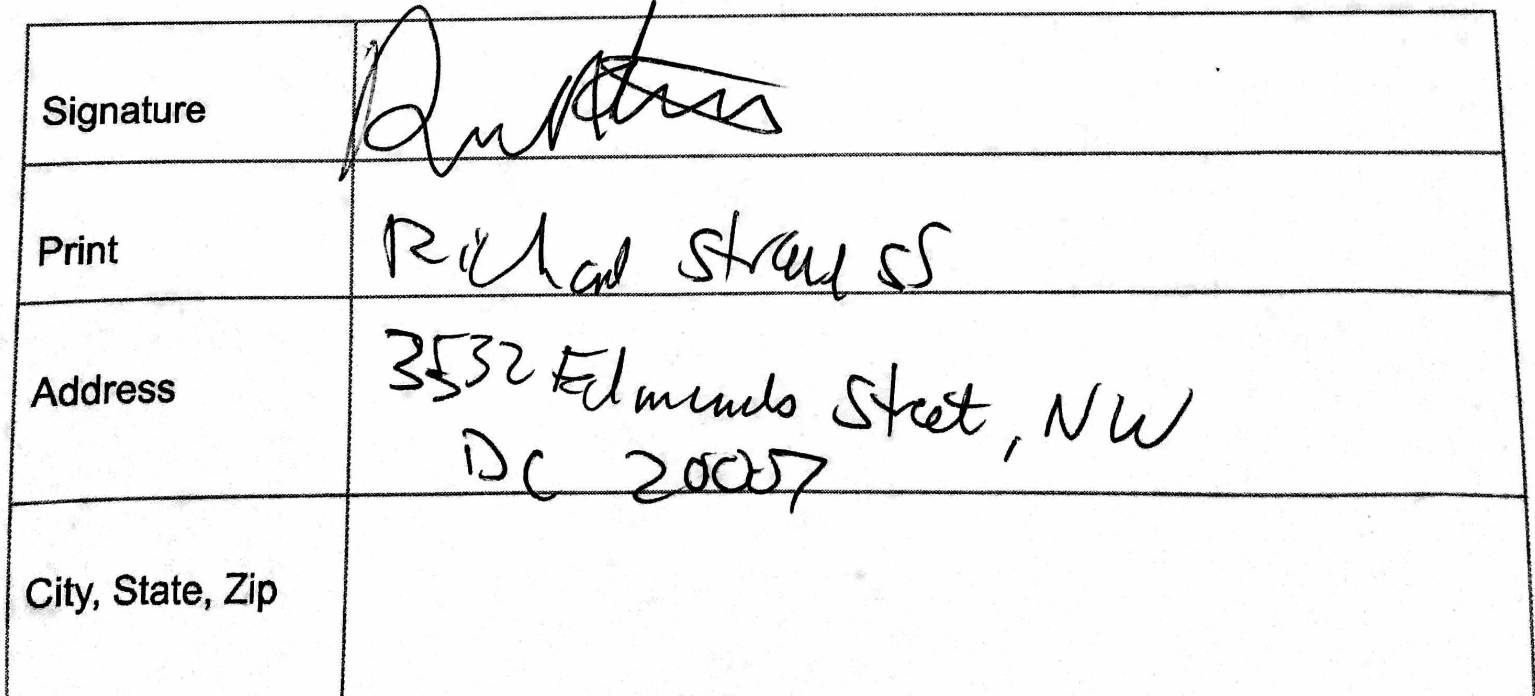 Signature
Print Richard Strauss
Address 3532 Edmunds Street, NW
DC 20007
City, State, Zip